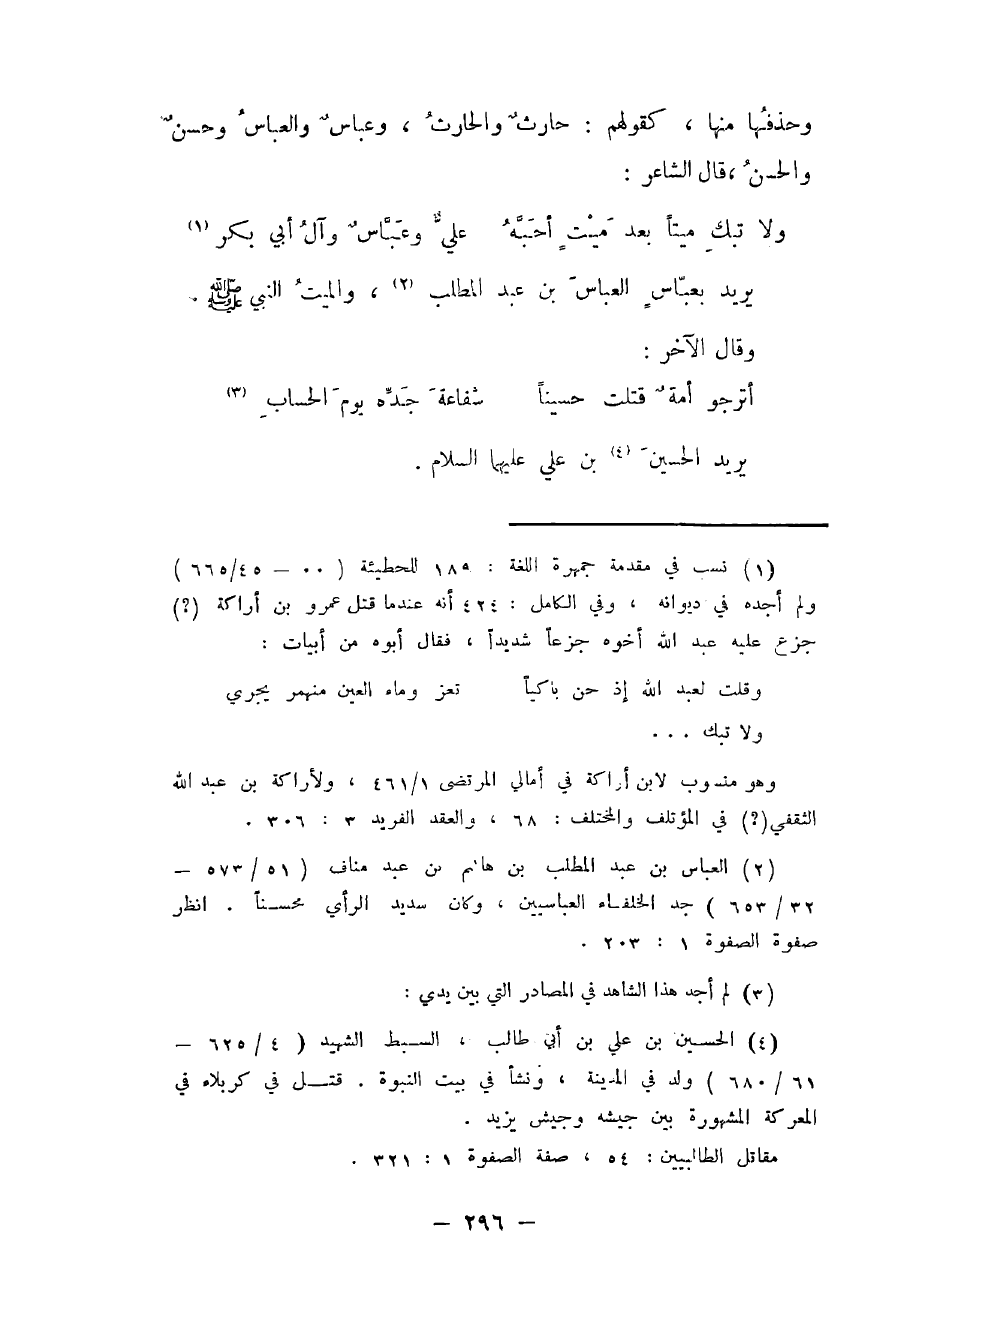 وحذفُها منها ، كقولهم : حارثٌ والحارثُ ، وعباسٌ والعباسُ وحسنٌ
والحسنُ ،قال الشاعر :
ولا تبكِ ميتاً بعد مَيْتٍ أحَبَّهُ علیٌّ وعَبَّاسٌ وآلُ أبي بكر (١)
يريد بعبّاسٍ العباسَ بن عبد المطلب (٢) ، والميتُ النبي ﷺ .
وقال الآخر :
أترجو أمةٌ قتلت حسيناً شفاعةَ جَدِّه يومَ الحسابِ (٣)
يريد الحسينَ (٤) بن علي عليهما السلام .
(١) نسب في مقدمة جمهرة اللغة : ١٨٩ للحطيئة ( ٠٠ – ٦٦٥/٤٥ )
ولم أجده في ديوانه ، وفي الكامل : ٤٢٤ أنه عندما قتل عمرو بن أراكة (?)
جزع عليه عبد الله أخوه جزعاً شديداً ، فقال أبوه من أبيات :
وقلت لعبد الله إذ حن باكياً تعز وماء العين منهمر يجري
ولا تبك ...
وهو منسوب لابن أراكة في أمالي المرتضى ٤٦١/١ ، ولأراكة بن عبد الله
الثقفي(?) في المؤتلف والمختلف : ٦٨ ، والعقد الفريد ٣ : ٣٠٦ .
(٢) العباس بن عبد المطلب بن هاشم بن عبد مناف ( ٥١ / ٥٧٣ –
٣٢ / ٦٥٣ ) جد الخلفاء العباسيين ، وكان سديد الرأي محسناً . انظر
صفوة الصفوة ١ : ٢٠٣ .
(٣) لم أجد هذا الشاهد في المصادر التي بين يدي :
(٤) الحسين بن علي بن أبي طالب ، السبط الشهيد ( ٤ / ٦٢٥ –
٦١ / ٦٨٠ ) ولد في المدينة ، ونشأ في بيت النبوة . قتل في كربلاء في
المعركة المشهورة بين جيشه وجيش يزيد .
مقاتل الطالبيين : ٥٤ ، صفة الصفوة ١ : ٣٢١ .
– ٢٩٦ –